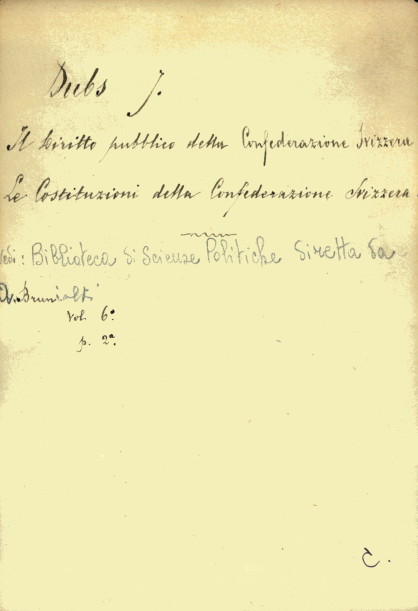 Dubs J.
Il diritto pubblico della Confederazione Svizzera
Le Costituzioni della Confederazione Svizzera.
Vedi: Biblioteca di Scienze Politiche diretta da
A. Brunialti
Vol. 6º
p. 2ª.
C.